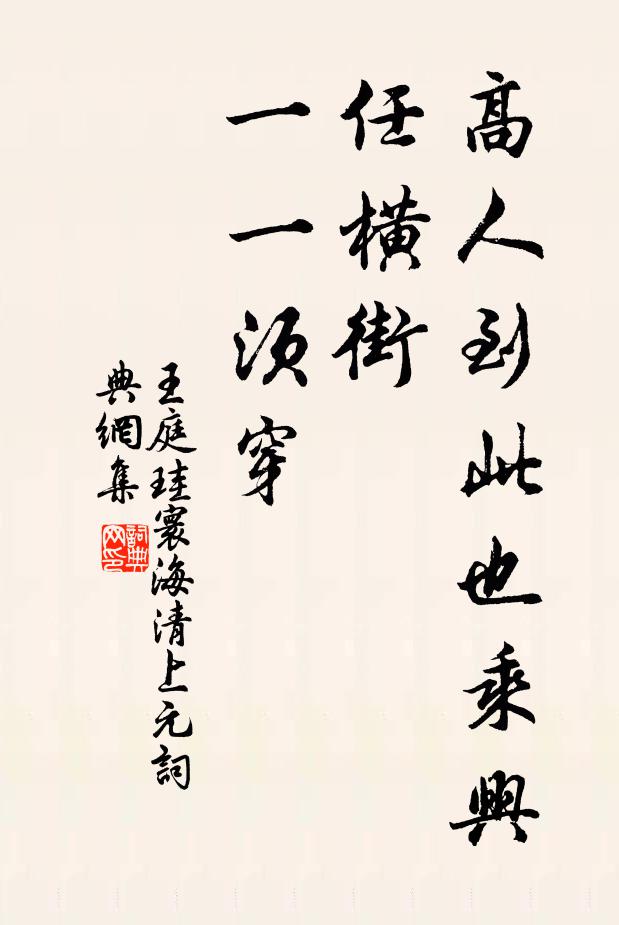 高人到此也乘興
任橫街
一一須穿
王庭珪寰海清上元詞
典網集
詞典網印